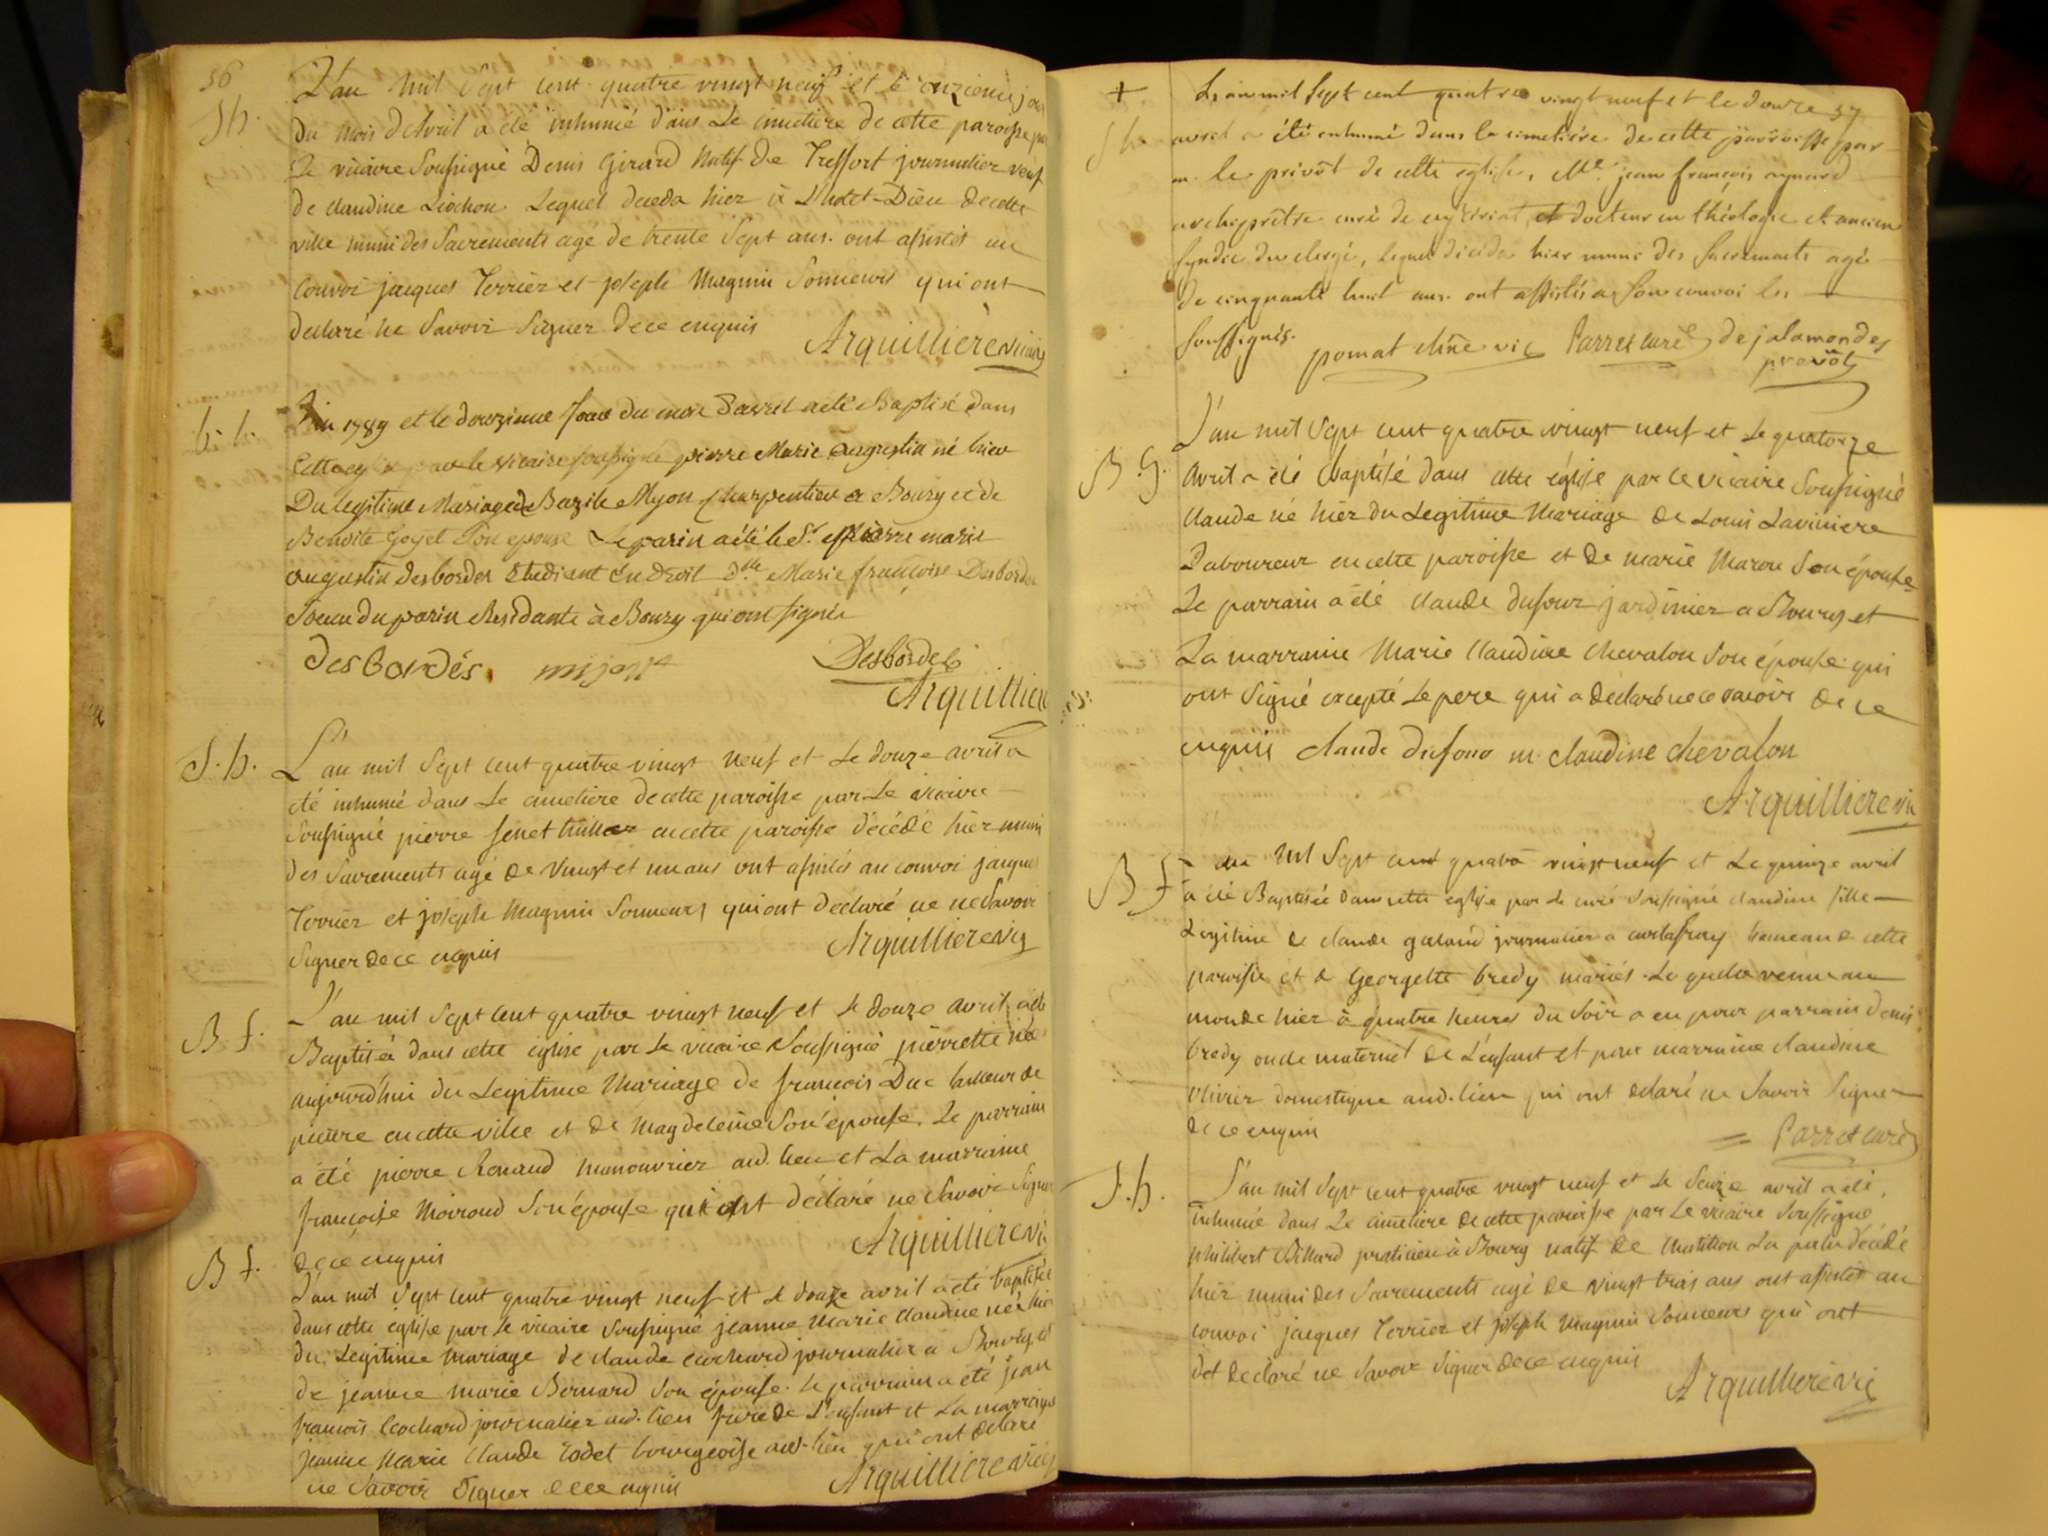 36
L'an mil Sept cent quatre vingt neuf et le onzieme jour
S h.
du mois d'avril a été inhumé dans Le cimetiere de cette paroisse par
Le vicaire Soussigné Denis Girard Natif de Treffort journalier veuf
de claudine Liochon Lequel deceda hier à L'hotel-Dieu de cette
ville muni des Sacrements agé de trente Sept ans. ont assisté au
Convoi jacques Terrier et joseph Magnin Sonneurs qui ont
declaré ne Savoir Signer de ce enquis
Arquilliere vicaire
b. h.
L'an 1789 et le douzieme Jour du mois d'avril a été Baptisé dans
Cette eglise par le vicaire soussigné pierre Marie Augustin né hier
Du legitime Mariage de Bazile Myon Charpentier a Bourg et de
Benoite Goyet Son epouse Le parin a été le Sr. pierre marie
augustin desbordes Etudiant En droit Dlle. Marie françoise Desbordes
Soeur du parin Residante à Bourg qui ont signés
desbordés. mijon
Desbordes
Arquilliere
S. h.
L'an mil Sept cent quatre vingt neuf et Le douze avril a
été inhumé dans Le cimetiere de cette paroisse par Le vicaire
Soussigné pierre Jenet en cette paroisse décédé hier muni
des Sacrements agé de vingt et un ans ont assistés au convoi jacques
Terrier et joseph Magnin Sonneurs qui ont déclaré ne ne Savoir
Signer de ce enquis
Arquilliere vic
B f.
L'an mil Sept cent quatre vingt neuf et Le douze avril a été
Baptisée dans cette église par Le vicaire Soussigné pierrette née
aujourd'hui du Legitime Mariage de françois Duc tailleur de
pierre en cette ville et de Magdeleine Son épouse. Le parrain
a été pierre Renaud manouvrier aud. lieu et La marraine
françoise Moiroud Son épouse qui ont déclaré ne Savoir Signer
de ce enquis
Arquilliere vic
B f.
L'an mil Sept cent quatre vingt neuf et Le douze avril a été baptisée
dans cette église par le vicaire Soussigné jeanne Marie claudine née hier
du Legitime Mariage de claude cochard journalier à Bourg et
de jeanne marie Bernard Son épouse. Le parrain a été jean
françois Cochard journalier aud. lieu frere de L'enfant et La marraine
jeanne Marie Claude Todet bourgeoise aud. lieu qui ont déclaré
ne Savoir Signer de ce enquis
Arquilliere vic
+
L'an mil sept cent quatre vingt neuf et le douze 37
S h
avril a été inhumé dans le cimetière de cette parroisse par
m. le prévôt de cette eglise, Me. jean françois aynard
archiprêtre curé de ceyzeriat, et docteur en théologie et ancien
syndic du clergé, lequel décéda hier muni des Sacrements agé
de cinquante huit ans. ont assistés a son convoi les
soussignés.
pomat chne vic Parret curé de jalamondes
prevôt
B. G.
L'an mil Sept cent quatre vingt neuf et Le quatorze
Avril a été baptisé dans cette église par Le vicaire Soussigné
claude né hier du Legitime Mariage de Louis Laviniere
Laboureur en cette paroisse et de marie Maron Son épouse
Le parrain a été claude dufour jardinier a Bourg et
La marraine Marie Claudine chevalon Son épouse qui
ont Signé excepté Le pere qui a déclaré ne ce savoir de ce
enquis claude dufour m. claudine chevalon
Arquilliere vic
B f
L'an Mil Sept cent quatre vingt neuf et Le quinze avril
a été Baptisée dans cette eglise par Le curé soussigné claudine fille
Legitime de claude galand journalier a curtafray hameau de cette
paroisse et de Georgette bredy mariés. La quelle venue au
monde hier à quatre heures du Soir a eu pour parrain denis
bredy oncle maternel de L'enfant et pour marraine claudine
olivier domestique aud. lieu qui ont déclaré ne Savoir Signer
de ce enquis
Parret curé
S. h.
L'an mil Sept cent quatre vingt neuf et Le Seize avril a été
inhumé dans Le cimetiere de cette paroisse par Le vicaire Soussigné
philibert Billard praticien à Bourg natif de Chatillon La palu décédé
hier muni des Sacrements agé de vingt trois ans ont assistés au
convoi jacques Terrier et joseph Magnin Sonneurs qui ont
declaré ne Savoir Signer de ce enquis
Arquilliere vic